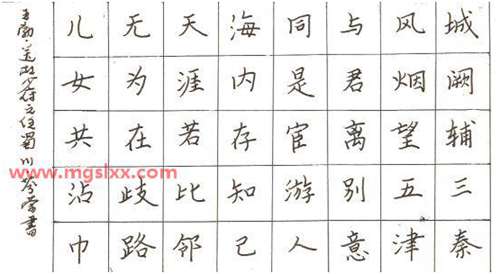 城阙辅三秦
风烟望五津
与君离别意
同是宦游人
海内存知己
天涯若比邻
无为在歧路
儿女共沾巾
王勃·送杜少府之任蜀川 書
www.mgslxx.com